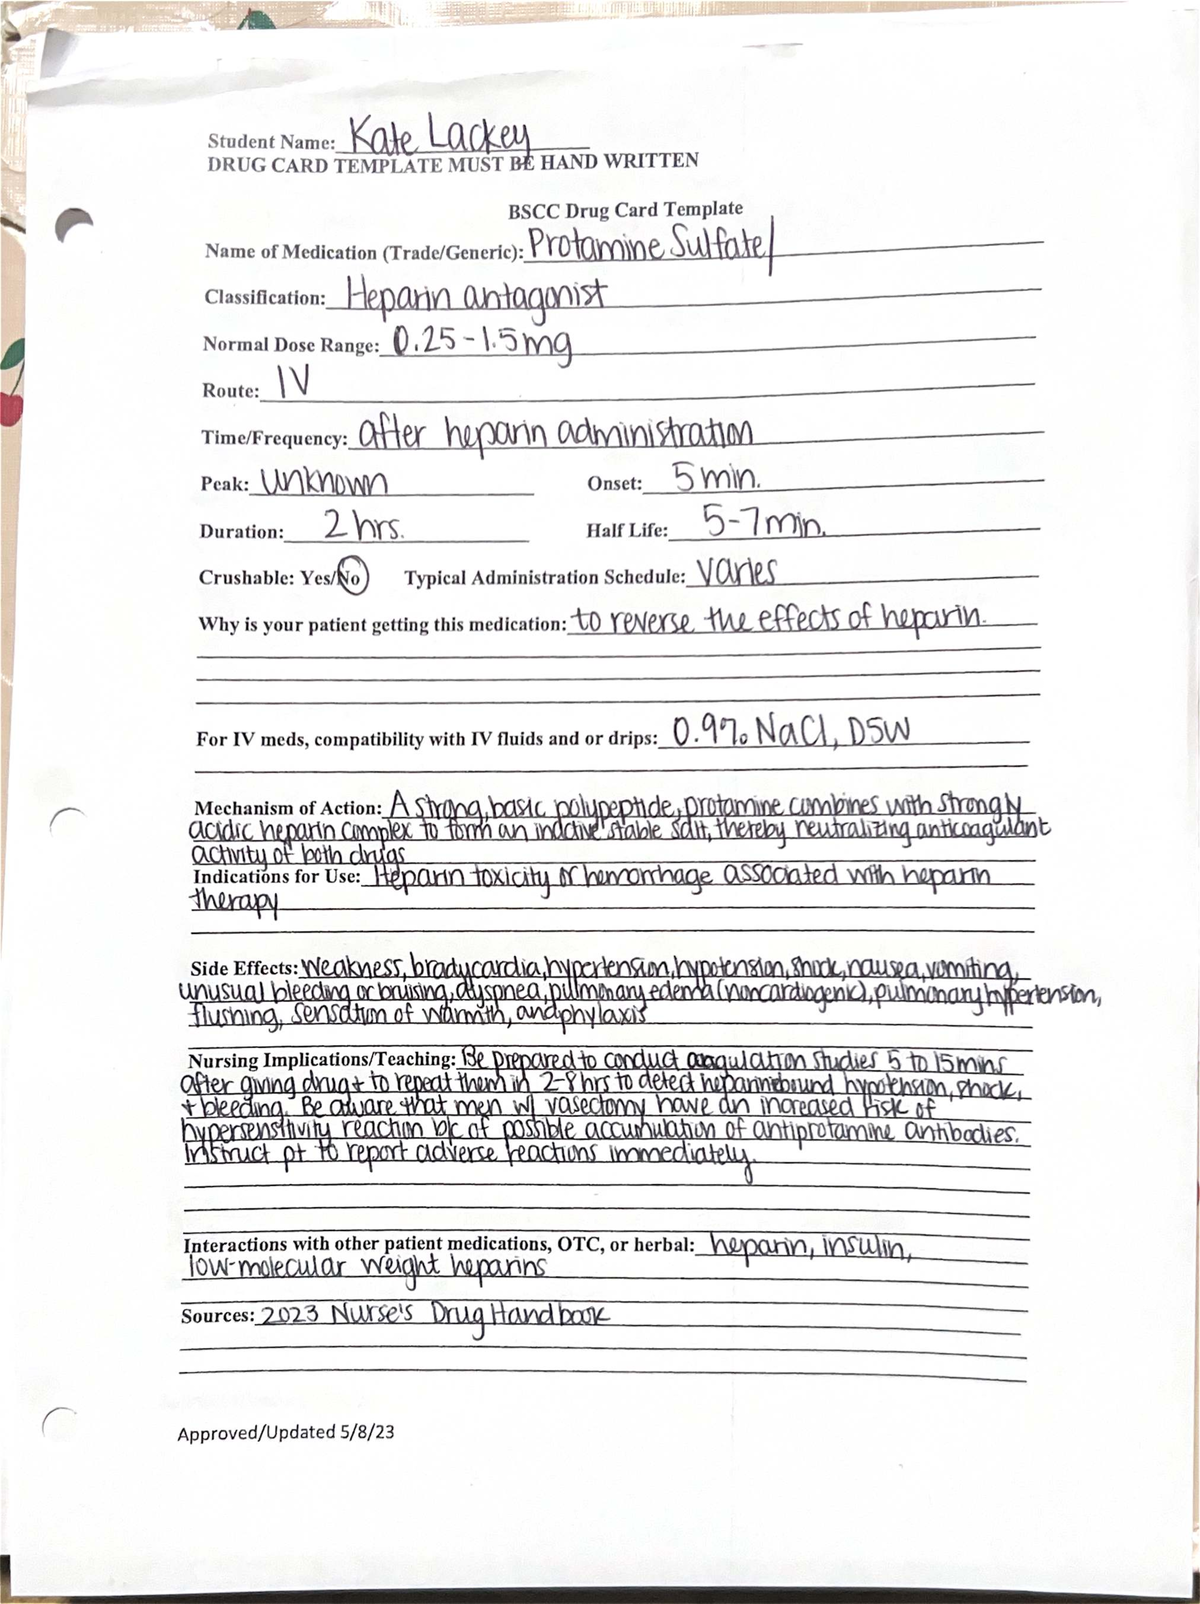 Student Name: Kate Lackey
DRUG CARD TEMPLATE MUST BE HAND WRITTEN
BSCC Drug Card Template
Name of Medication (Trade/Generic): Protamine Sulfate/
Classification: Heparin antagonist
Normal Dose Range: 0.25-1.5mg
Route: IV
Time/Frequency: after heparin administration
Peak: unknown Onset: 5 min.
Duration: 2 hrs. Half Life: 5-7min.
Crushable: Yes/No Typical Administration Schedule: varies
Why is your patient getting this medication: to reverse the effects of heparin.
For IV meds, compatibility with IV fluids and or drips: 0.9% NaCl, D5W
Mechanism of Action: A strong, basic polypeptide, protamine combines with strongly
acidic heparin complex to form an inactive stable salt, thereby neutralizing anticoagulant
activity of both drugs
Indications for Use: Heparin toxicity or hemorrhage associated with heparin
therapy
Side Effects: Weakness, bradycardia, hypertension, hypotension, shock, nausea, vomiting,
unusual bleeding or bruising, dyspnea, pulmonary edema (noncardiogenic), pulmonary hypertension,
flushing, sensation of warmth, anaphylaxis
Nursing Implications/Teaching: Be prepared to conduct coagulation studies 5 to 15mins
after giving drug + to repeat them in 2-8hrs to detect heparin rebound hypotension, shock,
+ bleeding. Be aware that men w/ vasectomy have an increased risk of
hypersensitivity reaction b/c of possible accumulation of antiprotamine antibodies.
Instruct pt to report adverse reactions immediately.
Interactions with other patient medications, OTC, or herbal: heparin, insulin,
low-molecular weight heparins
Sources: 2023 Nurse's Drug Handbook
Approved/Updated 5/8/23